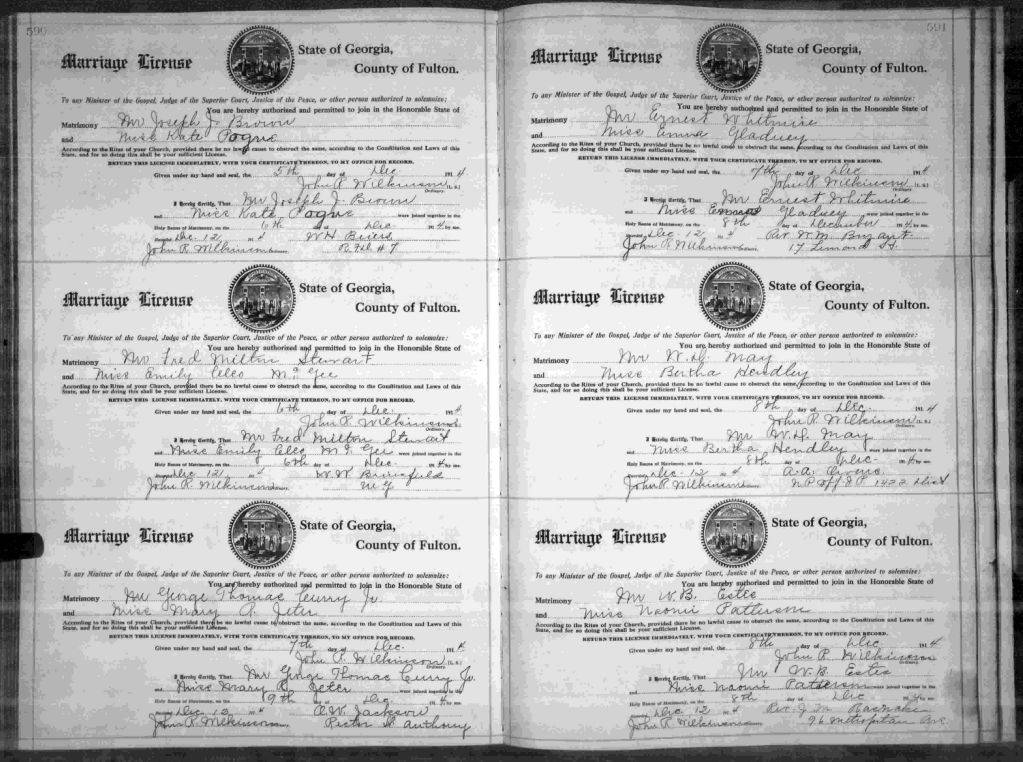 590
Marriage License
State of Georgia,
County of Fulton.
To any Minister of the Gospel, Judge of the Superior Court, Justice of the Peace, or other person authorized to solemnize:
You are hereby authorized and permitted to join in the Honorable State of
Matrimony Mr Joseph J. Brown
and Miss Kate Pogue
According to the Rites of your Church, provided there be no lawful cause to obstruct the same, according to the Constitution and Laws of this
State, and for so doing this shall be your sufficient License.
RETURN THIS LICENSE IMMEDIATELY, WITH YOUR CERTIFICATE THEREON, TO MY OFFICE FOR RECORD.
Given under my hand and seal, the 5th day of Dec 1914
John R. Wilkinson (L.S.)
Ordinary.
I Hereby Certify, That Mr Joseph J. Brown
and Miss Kate Pogue were joined together in the
Holy Banns of Matrimony, on the 6th day of Dec 1914, by me.
Recorded Dec 12 1914 W H
John R. Wilkinson Ordinary. R.F.D. # 7
Marriage License
State of Georgia,
County of Fulton.
To any Minister of the Gospel, Judge of the Superior Court, Justice of the Peace, or other person authorized to solemnize:
You are hereby authorized and permitted to join in the Honorable State of
Matrimony Mr Fred Milton Stewart
and Miss Emily Cleo McGee
According to the Rites of your Church, provided there be no lawful cause to obstruct the same, according to the Constitution and Laws of this
State, and for so doing this shall be your sufficient License.
RETURN THIS LICENSE IMMEDIATELY, WITH YOUR CERTIFICATE THEREON, TO MY OFFICE FOR RECORD.
Given under my hand and seal, the 6th day of Dec. 1914
John R. Wilkinson
Ordinary.
I Hereby Certify, That Mr Fred Milton Stewart
and Miss Emily Cleo McGee were joined together in the
Holy Banns of Matrimony, on the 6th day of Dec. 1914, by me.
Recorded Dec 12 1914 W. W.
John R. Wilkinson Ordinary. M G
Marriage License
State of Georgia,
County of Fulton.
To any Minister of the Gospel, Judge of the Superior Court, Justice of the Peace, or other person authorized to solemnize:
You are hereby authorized and permitted to join in the Honorable State of
Matrimony Mr George Thomas Curry Jr.
and Miss Mary R. Jeter
According to the Rites of your Church, provided there be no lawful cause to obstruct the same, according to the Constitution and Laws of this
State, and for so doing this shall be your sufficient License.
RETURN THIS LICENSE IMMEDIATELY, WITH YOUR CERTIFICATE THEREON, TO MY OFFICE FOR RECORD.
Given under my hand and seal, the 7th day of Dec. 1914
John R. Wilkinson (L.S.)
Ordinary.
I Hereby Certify, That Mr George Thomas Curry Jr
and Miss Mary R. Jeter were joined together in the
Holy Banns of Matrimony, on the 9th day of Dec 1914, by me.
Recorded Dec 12 1914 R.W. Jackson
John R. Wilkinson Ordinary. Rector St Anthony
591
Marriage License
State of Georgia,
County of Fulton.
To any Minister of the Gospel, Judge of the Superior Court, Justice of the Peace, or other person authorized to solemnize:
You are hereby authorized and permitted to join in the Honorable State of
Matrimony Mr Ernest Whitmire
and Miss Emma Gladney
According to the Rites of your Church, provided there be no lawful cause to obstruct the same, according to the Constitution and Laws of this
State, and for so doing this shall be your sufficient License.
RETURN THIS LICENSE IMMEDIATELY, WITH YOUR CERTIFICATE THEREON, TO MY OFFICE FOR RECORD.
Given under my hand and seal, the 7th day of Dec 1914
John R. Wilkinson (L.S.)
Ordinary.
I Hereby Certify, That Mr Ernest Whitmire
and Miss Emma Gladney were joined together in the
Holy Banns of Matrimony, on the 8th day of December 1914, by me.
Recorded Dec 12 1914 Rev. W. M. Bryant
John R. Wilkinson Ordinary. 17 St.
Marriage License
State of Georgia,
County of Fulton.
To any Minister of the Gospel, Judge of the Superior Court, Justice of the Peace, or other person authorized to solemnize:
You are hereby authorized and permitted to join in the Honorable State of
Matrimony Mr W. D. May
and Miss Bertha Hendley
According to the Rites of your Church, provided there be no lawful cause to obstruct the same, according to the Constitution and Laws of this
State, and for so doing this shall be your sufficient License.
RETURN THIS LICENSE IMMEDIATELY, WITH YOUR CERTIFICATE THEREON, TO MY OFFICE FOR RECORD.
Given under my hand and seal, the 8th day of Dec. 1914
John R. Wilkinson (L.S.)
Ordinary.
I Hereby Certify, That Mr W. D. May
and Miss Bertha Hendley were joined together in the
Holy Banns of Matrimony, on the 8th day of Dec. 1914, by me.
Recorded Dec 12 1914 A. A. Owens
John R. Wilkinson Ordinary. N.P. Off J.P. 1422 Dist
Marriage License
State of Georgia,
County of Fulton.
To any Minister of the Gospel, Judge of the Superior Court, Justice of the Peace, or other person authorized to solemnize:
You are hereby authorized and permitted to join in the Honorable State of
Matrimony Mr W. B. Estes
and Miss Naomi Patterson
According to the Rites of your Church, provided there be no lawful cause to obstruct the same, according to the Constitution and Laws of this
State, and for so doing this shall be your sufficient License.
RETURN THIS LICENSE IMMEDIATELY, WITH YOUR CERTIFICATE THEREON, TO MY OFFICE FOR RECORD.
Given under my hand and seal, the 8th day of Dec 1914
John R. Wilkinson
Ordinary.
I Hereby Certify, That Mr W. B. Estes
and Miss Naomi Patterson were joined together in the
Holy Banns of Matrimony, on the 8th day of Dec 1914, by me.
Recorded Dec 12 1914 Rev. J. M.
John R. Wilkinson Ordinary. 96 Metropolitan Ave